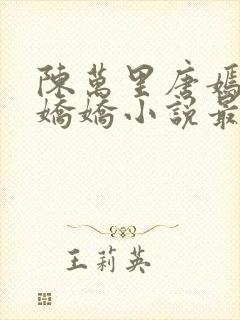 陳萬里唐嫣
嬌嬌小說最
王莉英